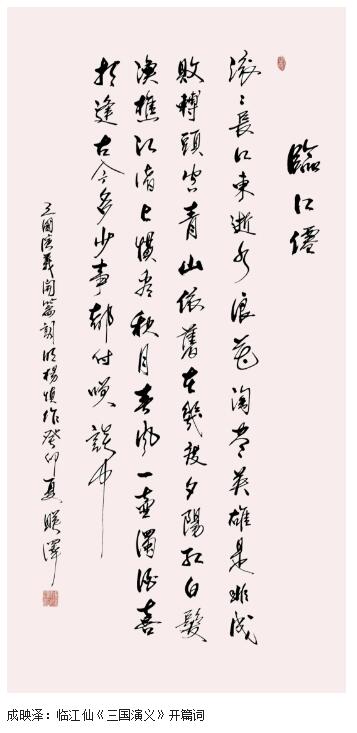 臨江僊
滚〻長江東逝水浪花淘盡英雄是非成
敗轉頭空青山依舊在幾度夕陽紅白髮
漁樵江渚上慣看秋月春風一壺濁酒喜
相逢古今多少事都付笑談中
三國演義開篇詞明楊慎作癸卯夏映澤
成映泽：临江仙《三国演义》开篇词